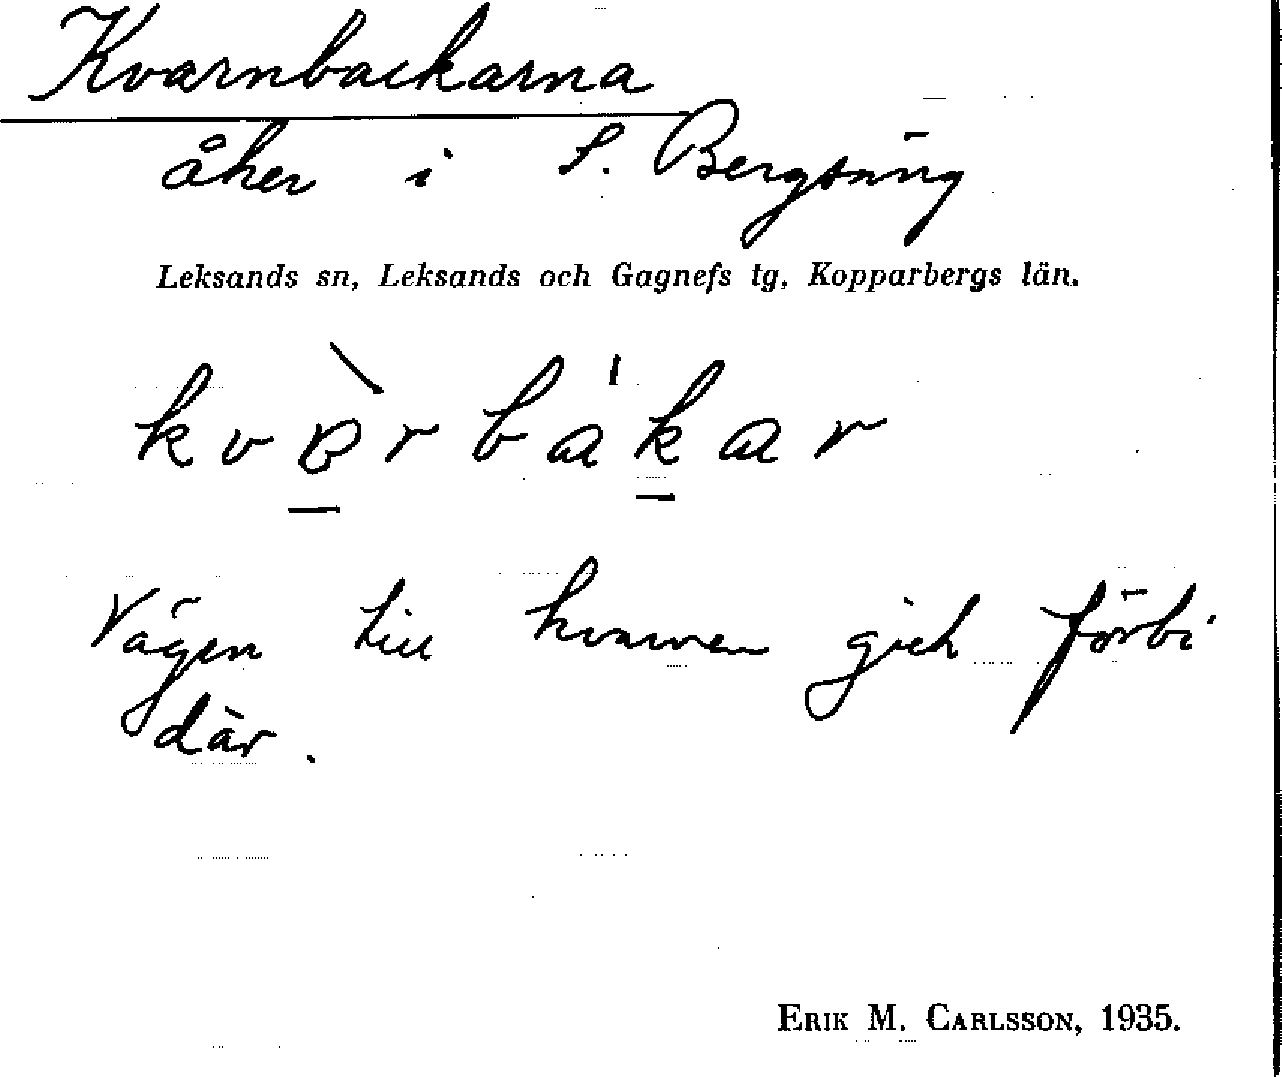 Kvarnbackarna
åker i S. Bergsäng
Leksands sn, Leksands och Gagnefs tg, Kopparbergs län.
kvɒ̀rbákar
Vägen till kvarnen gick förbi
där.
ERIK M. CARLSSON, 1935.